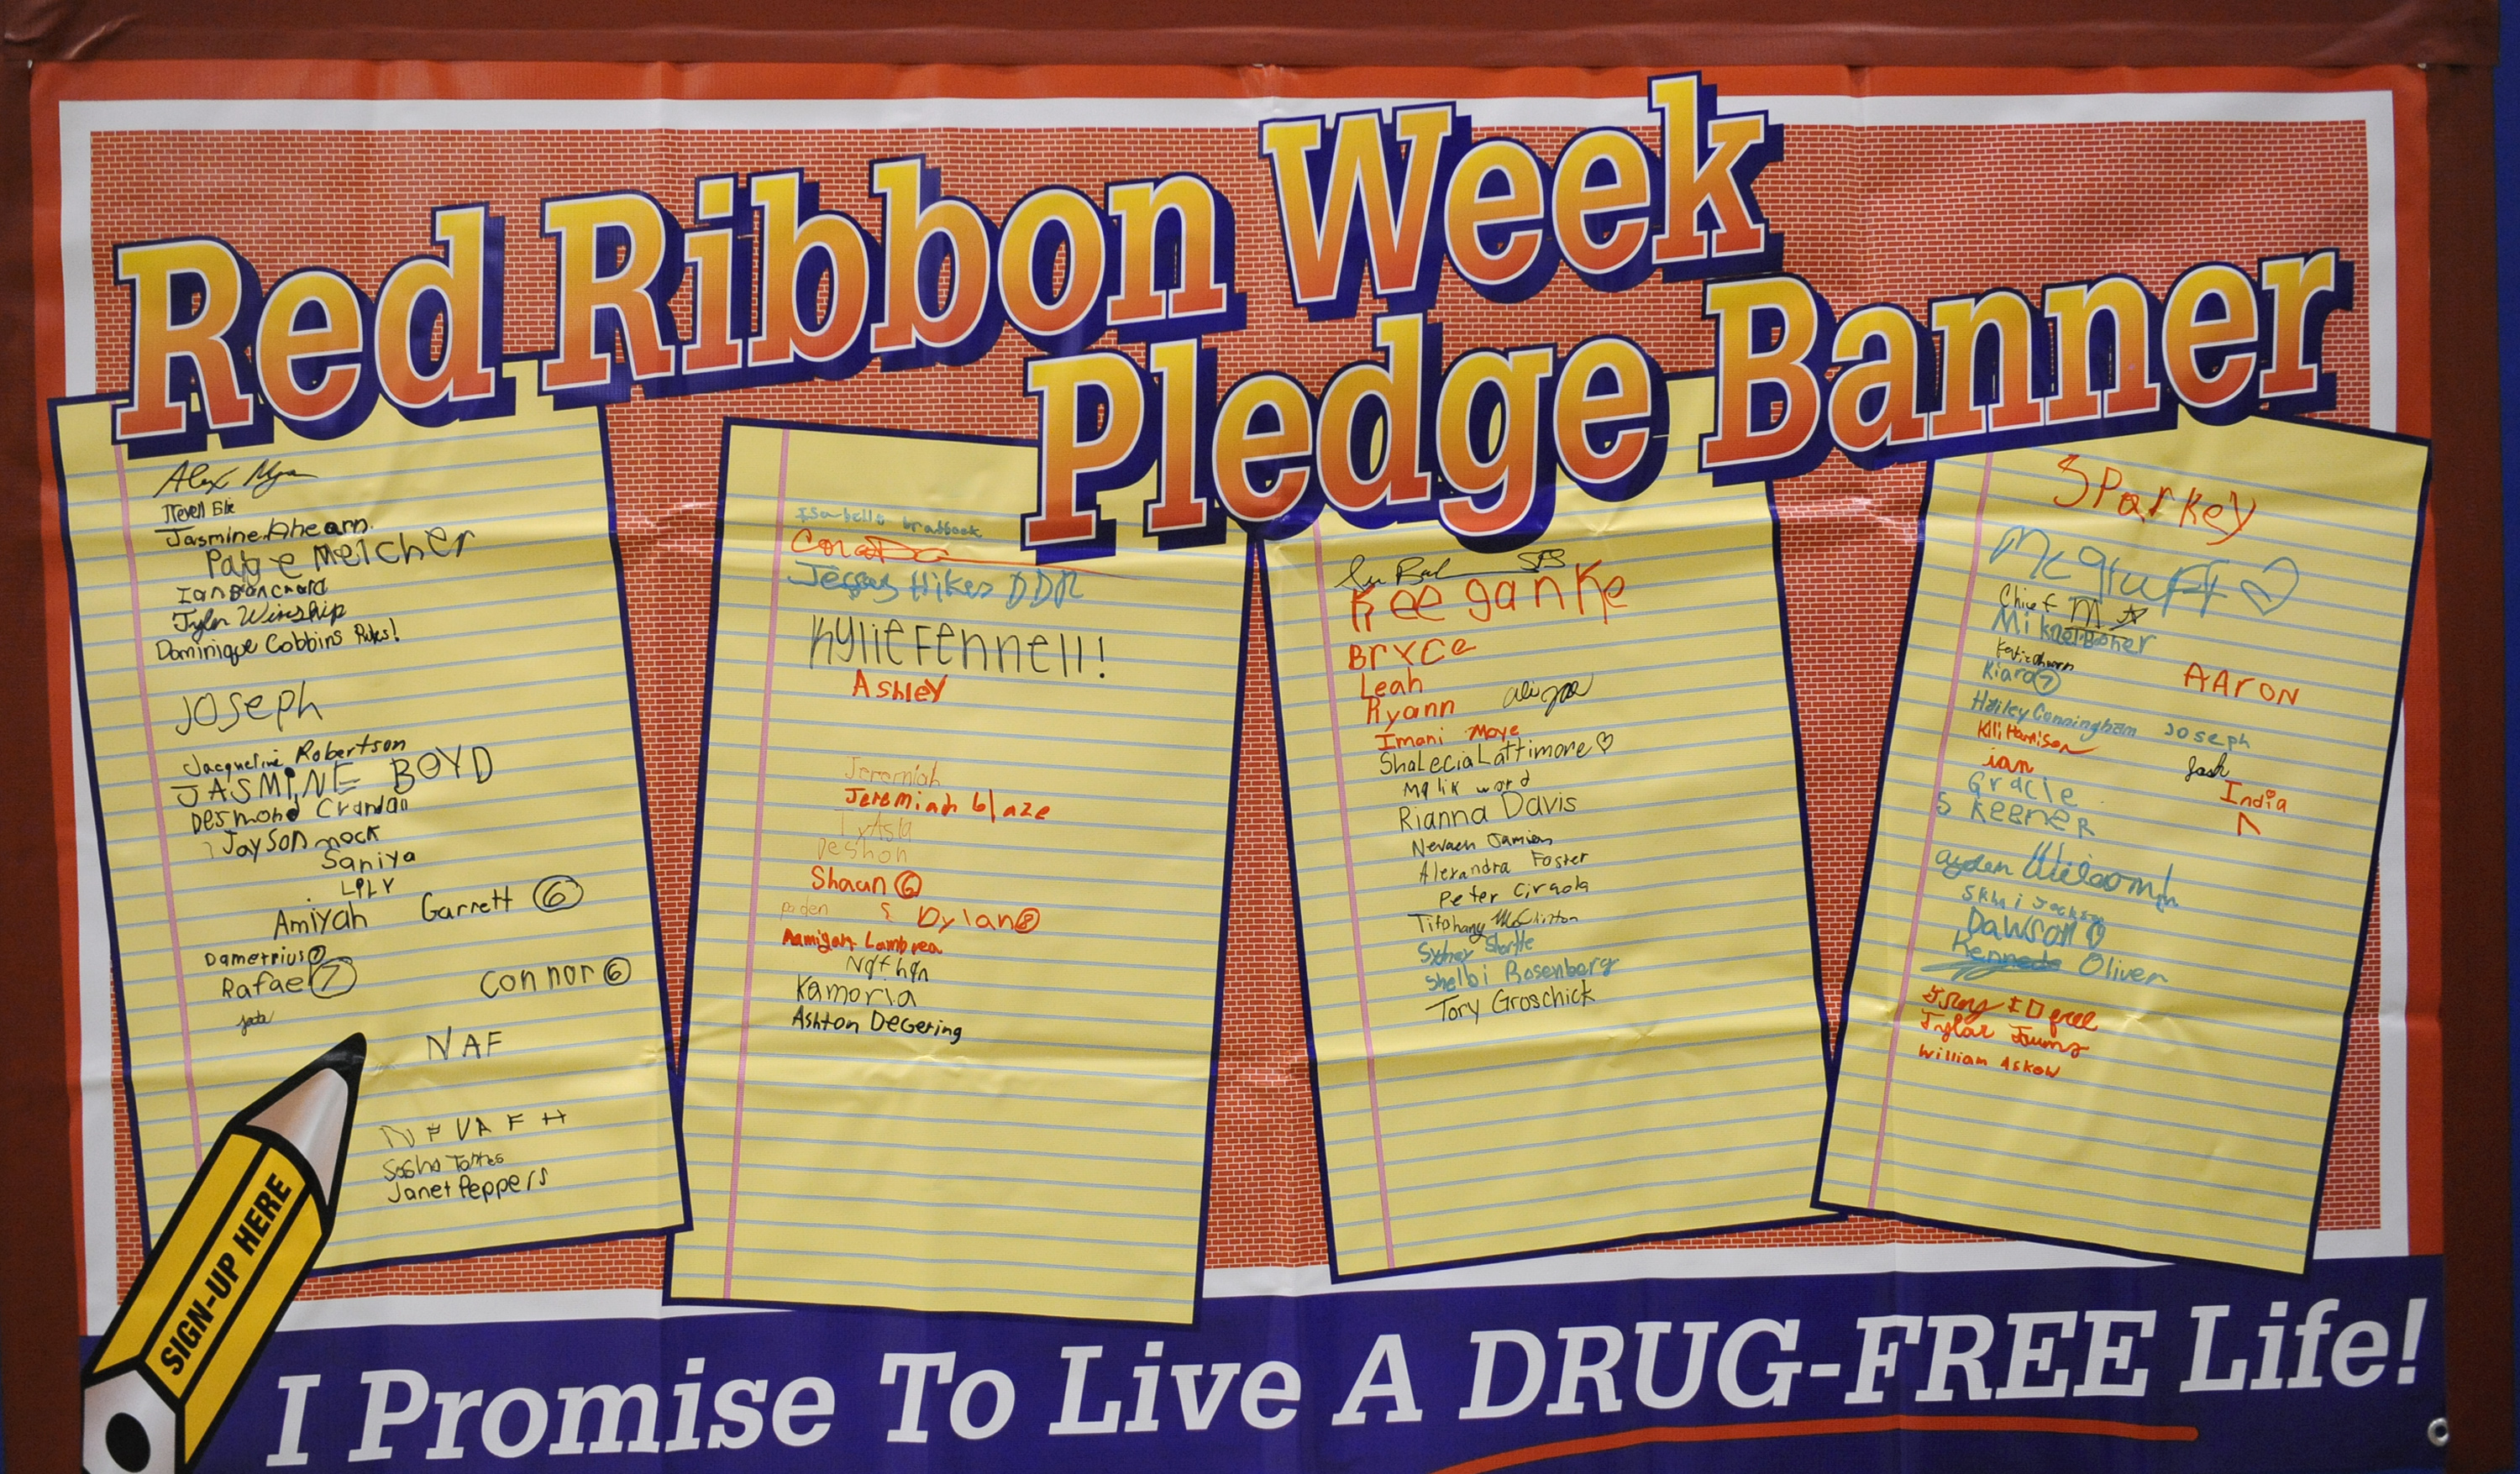 Red Ribbon Week
Pledge Banner
Alex
Jasmine Ahearn.
Paige Melcher
Ian Blanchard
Tyler Winship
Dominique Cobbins Rules!
JOSEPH
Jacqueline Robertson
JASMINE BOYD
Desmond
Jayson mock
Saniya
LILY
Amiyah Garrett 6
Dametrius 7
Rafael 7 Connor 6
NAF
NEVAEH
Sasha Torres
Janet Peppers
Isabella
Jessy Hikes DDR
Kylie Fennell!
Ashley
Jeremiah
Jeremiah blaze
Deshon
Shaun 6
paden & Dylan 8
Nathan
Kamoria
Ashton Degering
Keegan Ke
Bryce
Leah
Ryann
Imani Moye
Shalecia Lattimore ♡
Malik word
Rianna Davis
Nevaeh Jamison
Alexandra Foster
Peter Ciraola
Tiffhany McClinton
Sydney
Shelbi Rosenberg
Tory Groschick
Sparkey
McGruff ♡
Chief M
Kiara 7 AARON
Hailey Cunningham Joseph
Kili Harrison
ian Josh
Gracie India
S KEENER
ayden
Dawson
Oliver
William Askow
SIGN-UP HERE
I Promise To Live A DRUG-FREE Life!